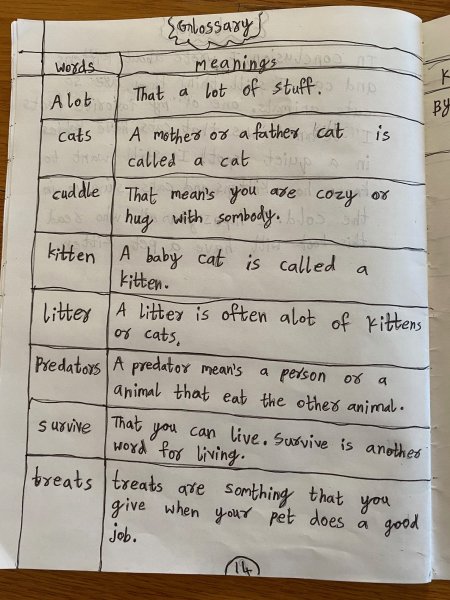 Glossary
words meanings
Alot That a lot of stuff.
cats A mother or a father cat is
called a cat
cuddle That mean's you are cozy or
hug with sombody.
kitten A baby cat is called a
kitten.
litter A litter is often alot of kittens
or cats.
Predators A predator mean's a person or a
animal that eat the other animal.
survive That you can live. Survive is another
word for living.
treats treats are somthing that you
give when your pet does a good
job.
14
K
By